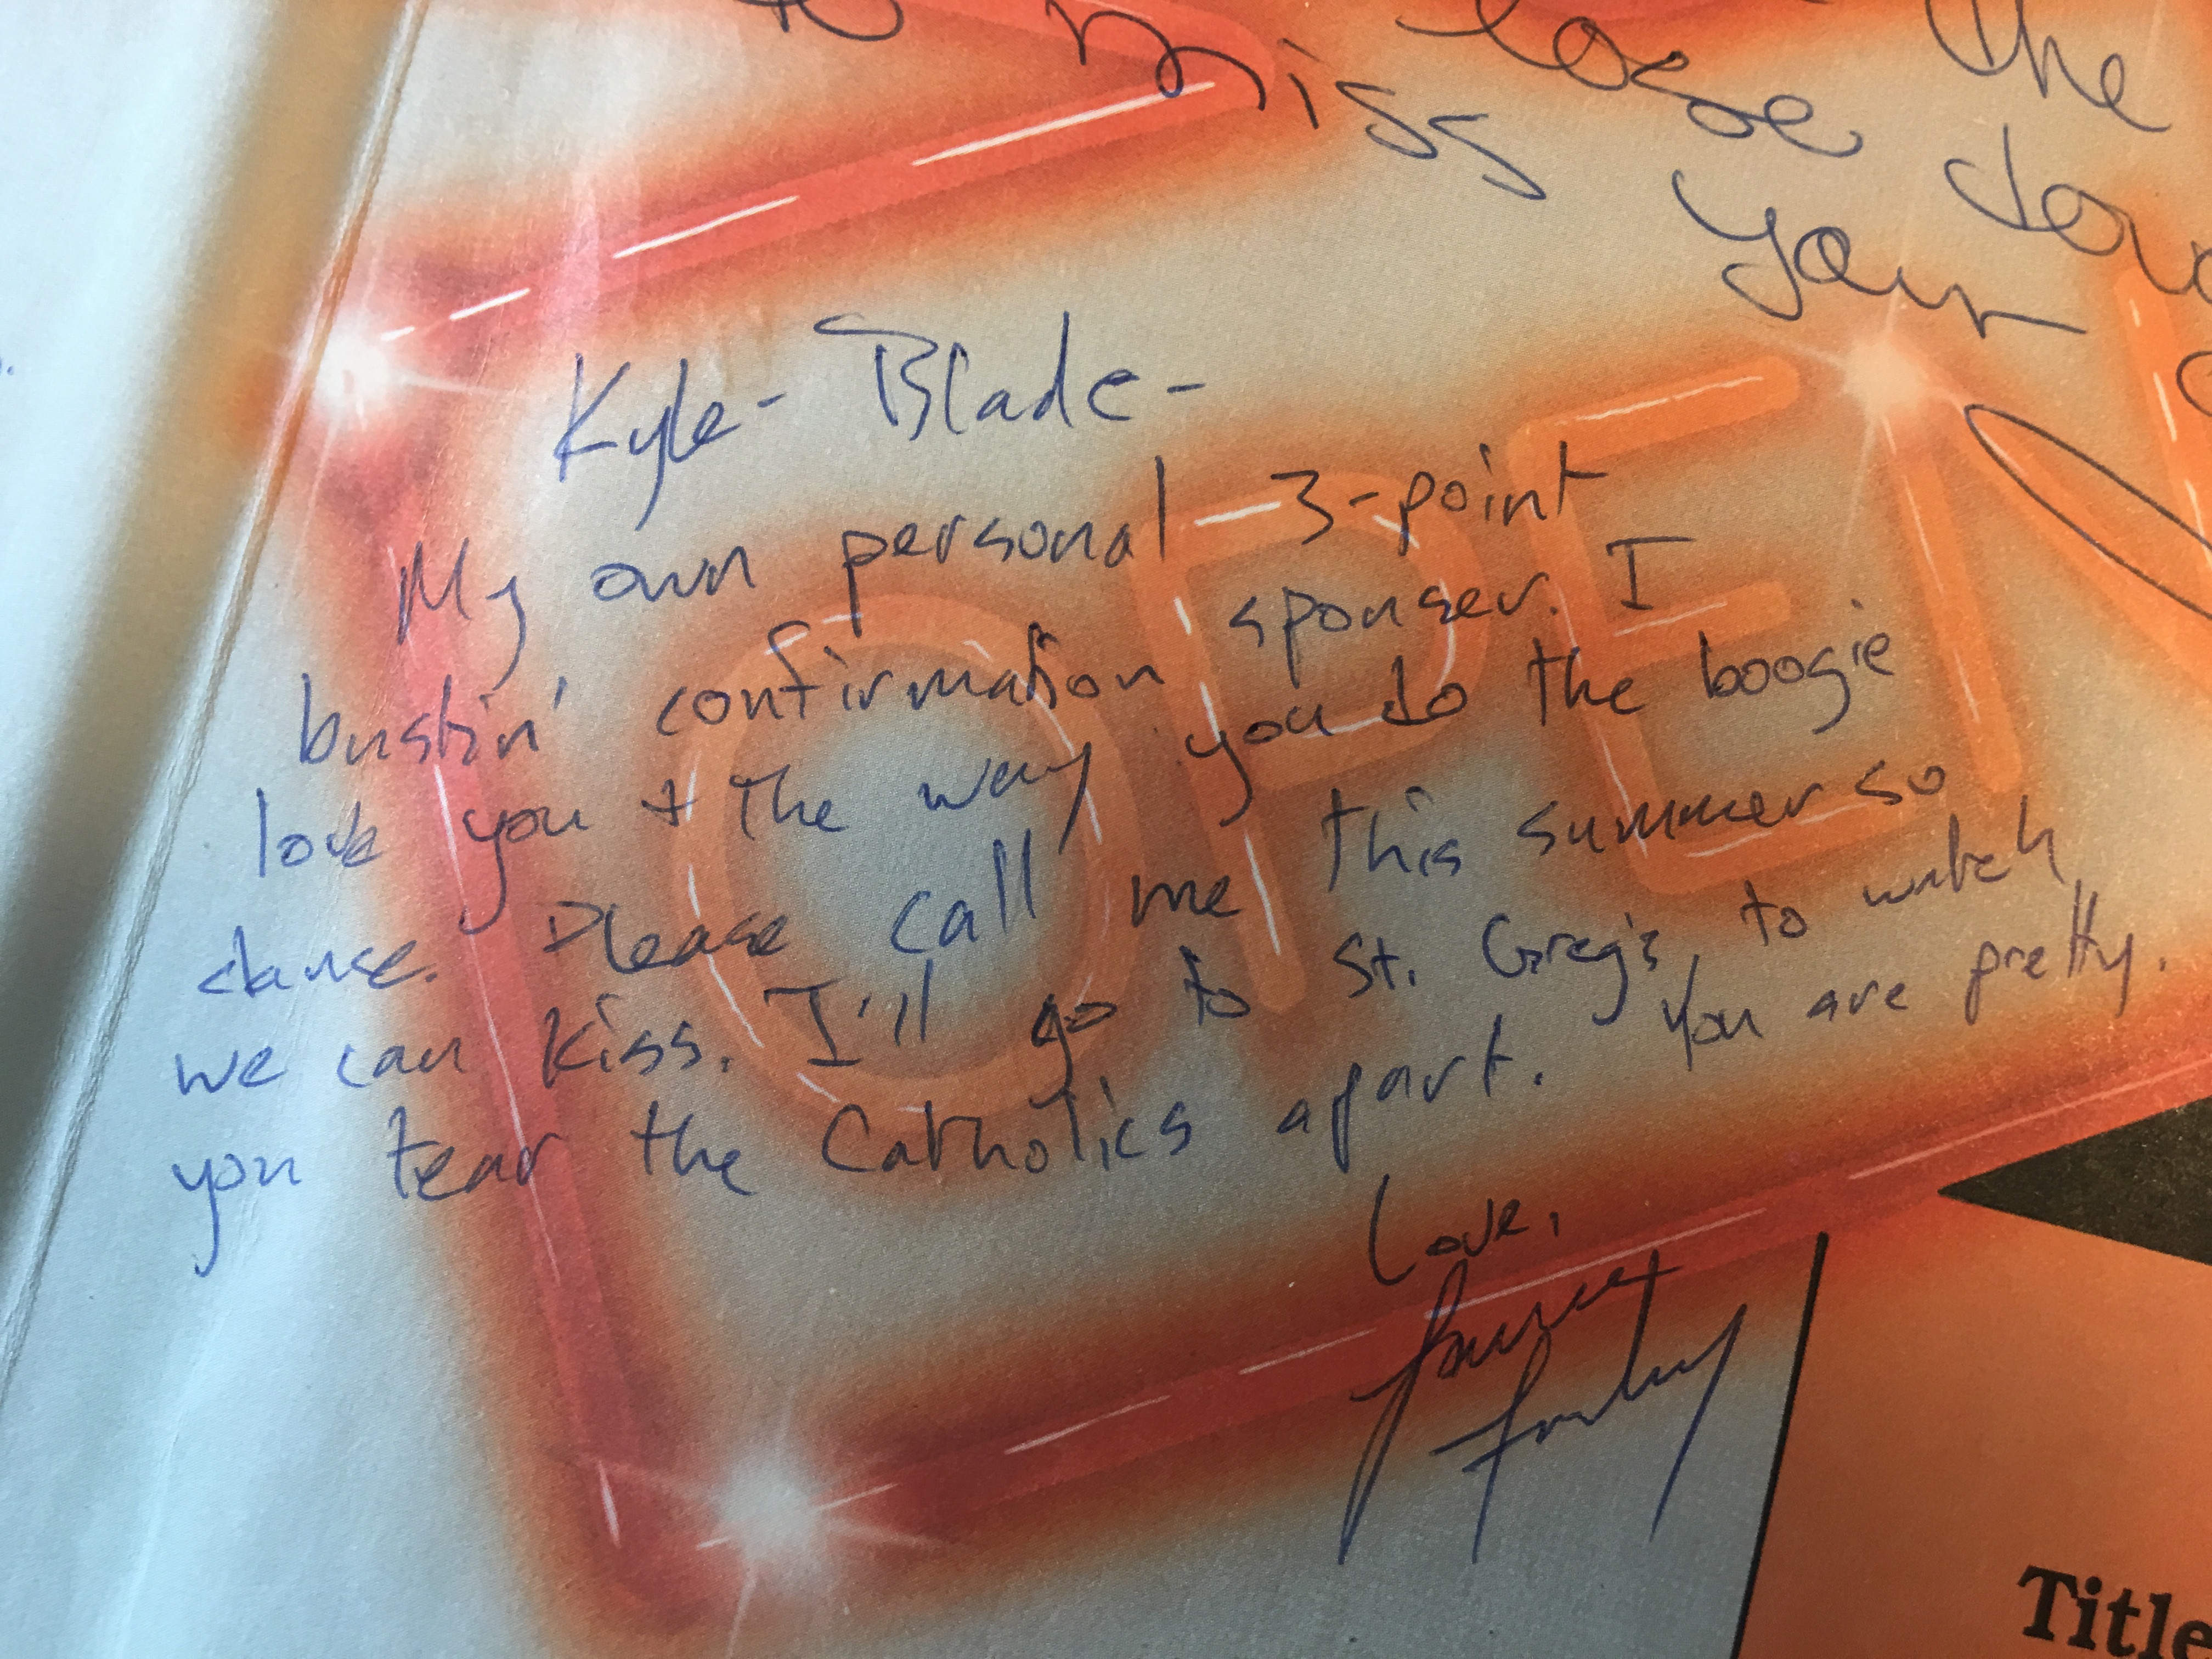 to miss
lose
your
the
Kyle- Blade-
My own personal 3-point
bustin' confirmation sponser. I
love you + the way you do the boogie
dance. Please call me this summer so
we can kiss. I'll go to St. Greg's to watch
you tear the Catholics apart. You are pretty.
Love,
OPEN
Title